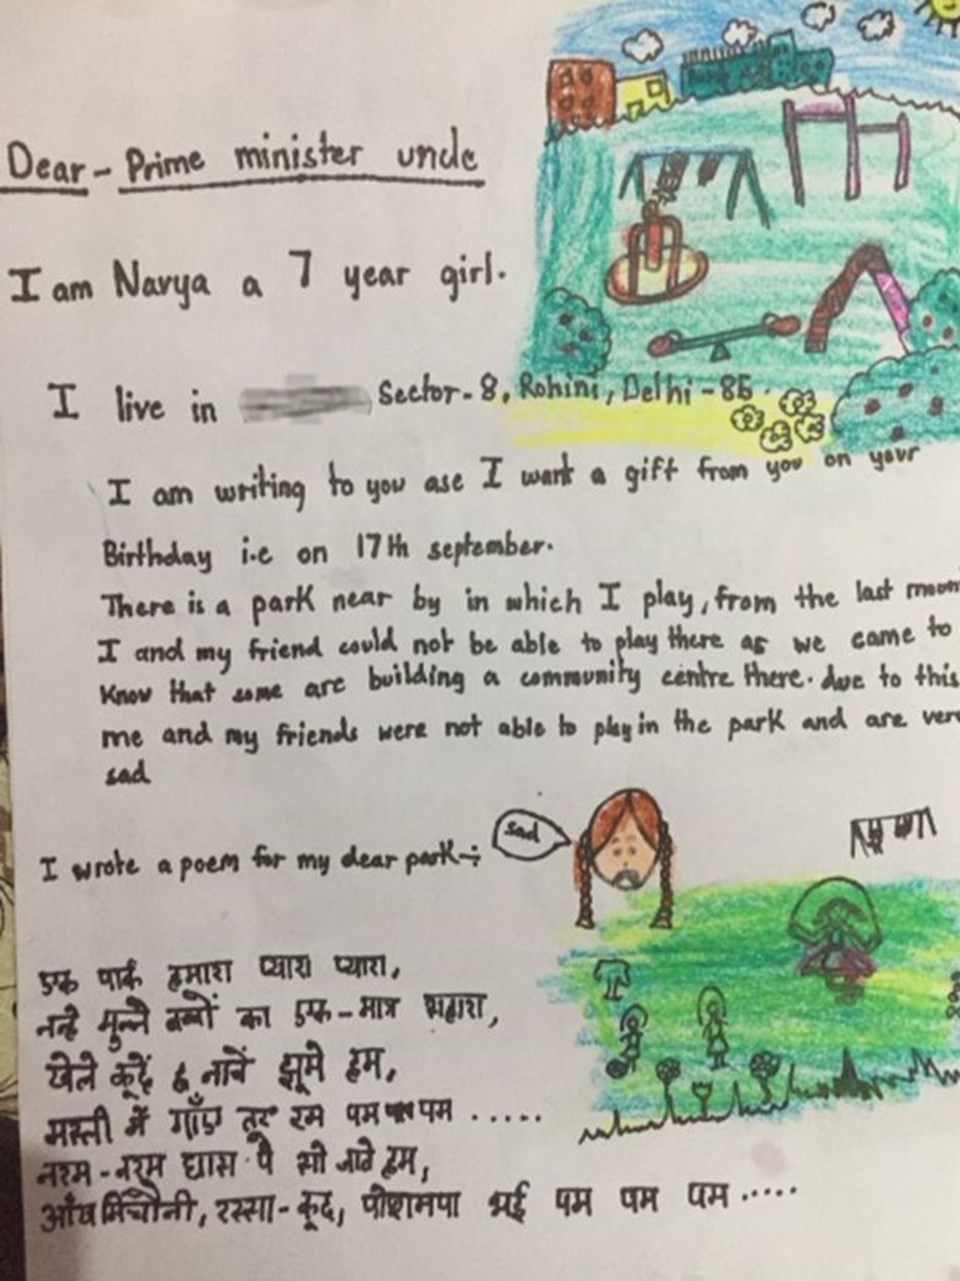 Dear - Prime minister uncle
I am Navya a 7 year girl.
I live in Sector-8, Rohini, Delhi-85.
I am writing to you ase I want a gift from you on your
Birthday i.e on 17th september.
There is a park near by in which I play, from the last
I and my friend could not be able to play there as we came to
Know that some are building a community centre there. due to this
me and my friends were not able to play in the park and are
sad
I wrote a poem for my dear park-;
sad
एक पार्क हमारा प्यारा प्यारा,
नन्हे मुन्ने बच्चों का एक-मात्र सहारा,
खेले कूदें नाचें झूमे हम,
मस्ती में गाँए रम पम पम .....
नरम-नरम घास पे सो जावे हम,
आँख मिचौनी, रस्सा-कूद, पोशमपा भई पम पम पम .....